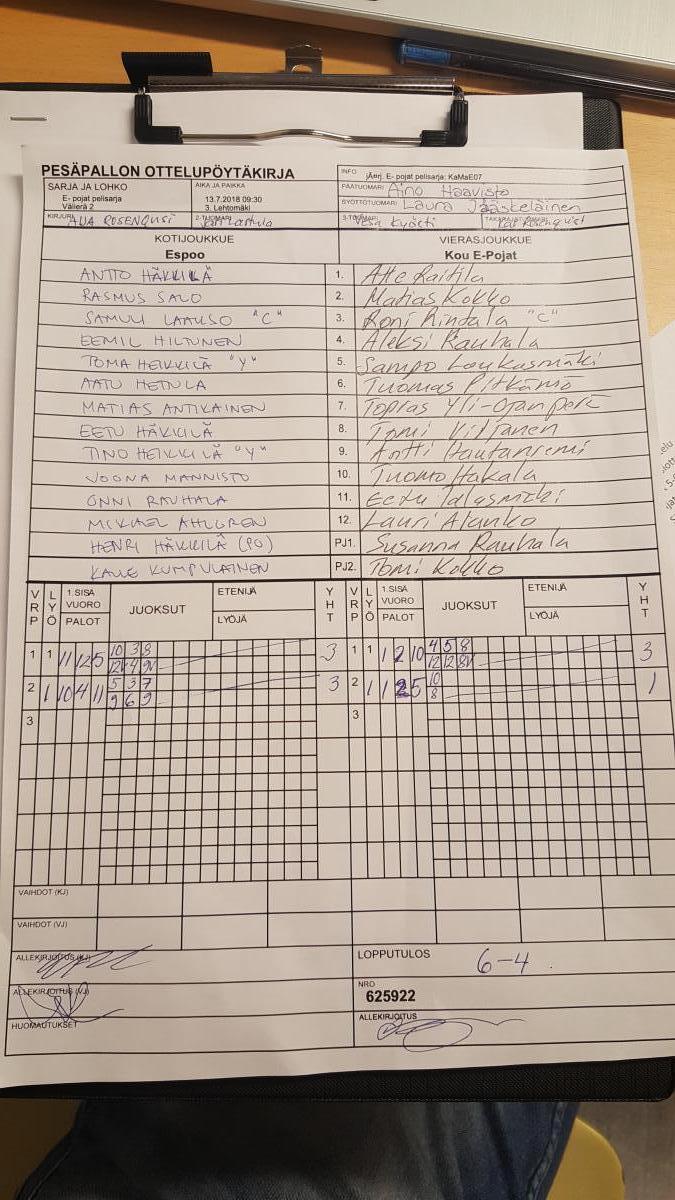 PESÄPALLON OTTELUPÖYTÄKIRJA
INFO jÄerj. E- pojat pelisarja: KaMaE07
SARJA JA LOHKO
E- pojat pelisarja
Välierä 2
AIKA JA PAIKKA
13.7.2018 09:30
3. Lehtomäki
PÄÄTUOMARI Aino Haavisto
SYÖTTÖTUOMARI Laura Jääskeläinen
KIRJURI ROSENQVIST
2-TUOMARI
3-TUOMARI Vesa Kyösti
TAKARAJATUOMARI Rosenqvist
KOTIJOUKKUE
Espoo
VIERASJOUKKUE
Kou E-Pojat
ANTTO HÄKKILÄ 1. Atte Raitila
RASMUS SALO 2. Matias Kokko
SAMULI LAAKSO "C" 3. Roni Rintala "C"
EEMIL HILTUNEN 4. Aleksi Rauhala
TOMA HEIKKILÄ "Y" 5. Sampo Loukasmäki
AATU HETULA 6. Tuomas Pitkämö
MATIAS ANTIKAINEN 7. Topias Yli-Ojanperä
EETU HÄKKILÄ 8. Tomi Viljanen
TINO HEIKKILÄ "Y" 9. Antti Hautaniemi
JOONA MANNISTO 10. Tuomo Hakala
ONNI RAUHALA 11. Eetu Talasmäki
MIKAEL AHLGREN 12. Lauri Alanko
HENRI HÄKKILÄ (PO) PJ1. Susanna Rauhala
KALLE KUMPULAINEN PJ2. Tomi Kokko
VRP LYÖ 1.SISÄ VUORO PALOT JUOKSUT ETENIJÄ LYÖJÄ YHT VRP LYÖ 1.SISÄ VUORO PALOT JUOKSUT ETENIJÄ LYÖJÄ YHT
1 1 11 12 5 10 3 8 3 1 1 1 2 10 4 5 8 3
12 4 9V 12 12 8V
2 1 10 4 11 5 3 7 3 2 1 1 5 10 1
9 6 9 8
3 3
VAIHDOT (KJ)
VAIHDOT (VJ)
ALLEKIRJOITUS (KJ)
LOPPUTULOS 6-4
ALLEKIRJOITUS (VJ)
NRO
625922
HUOMAUTUKSET
ALLEKIRJOITUS